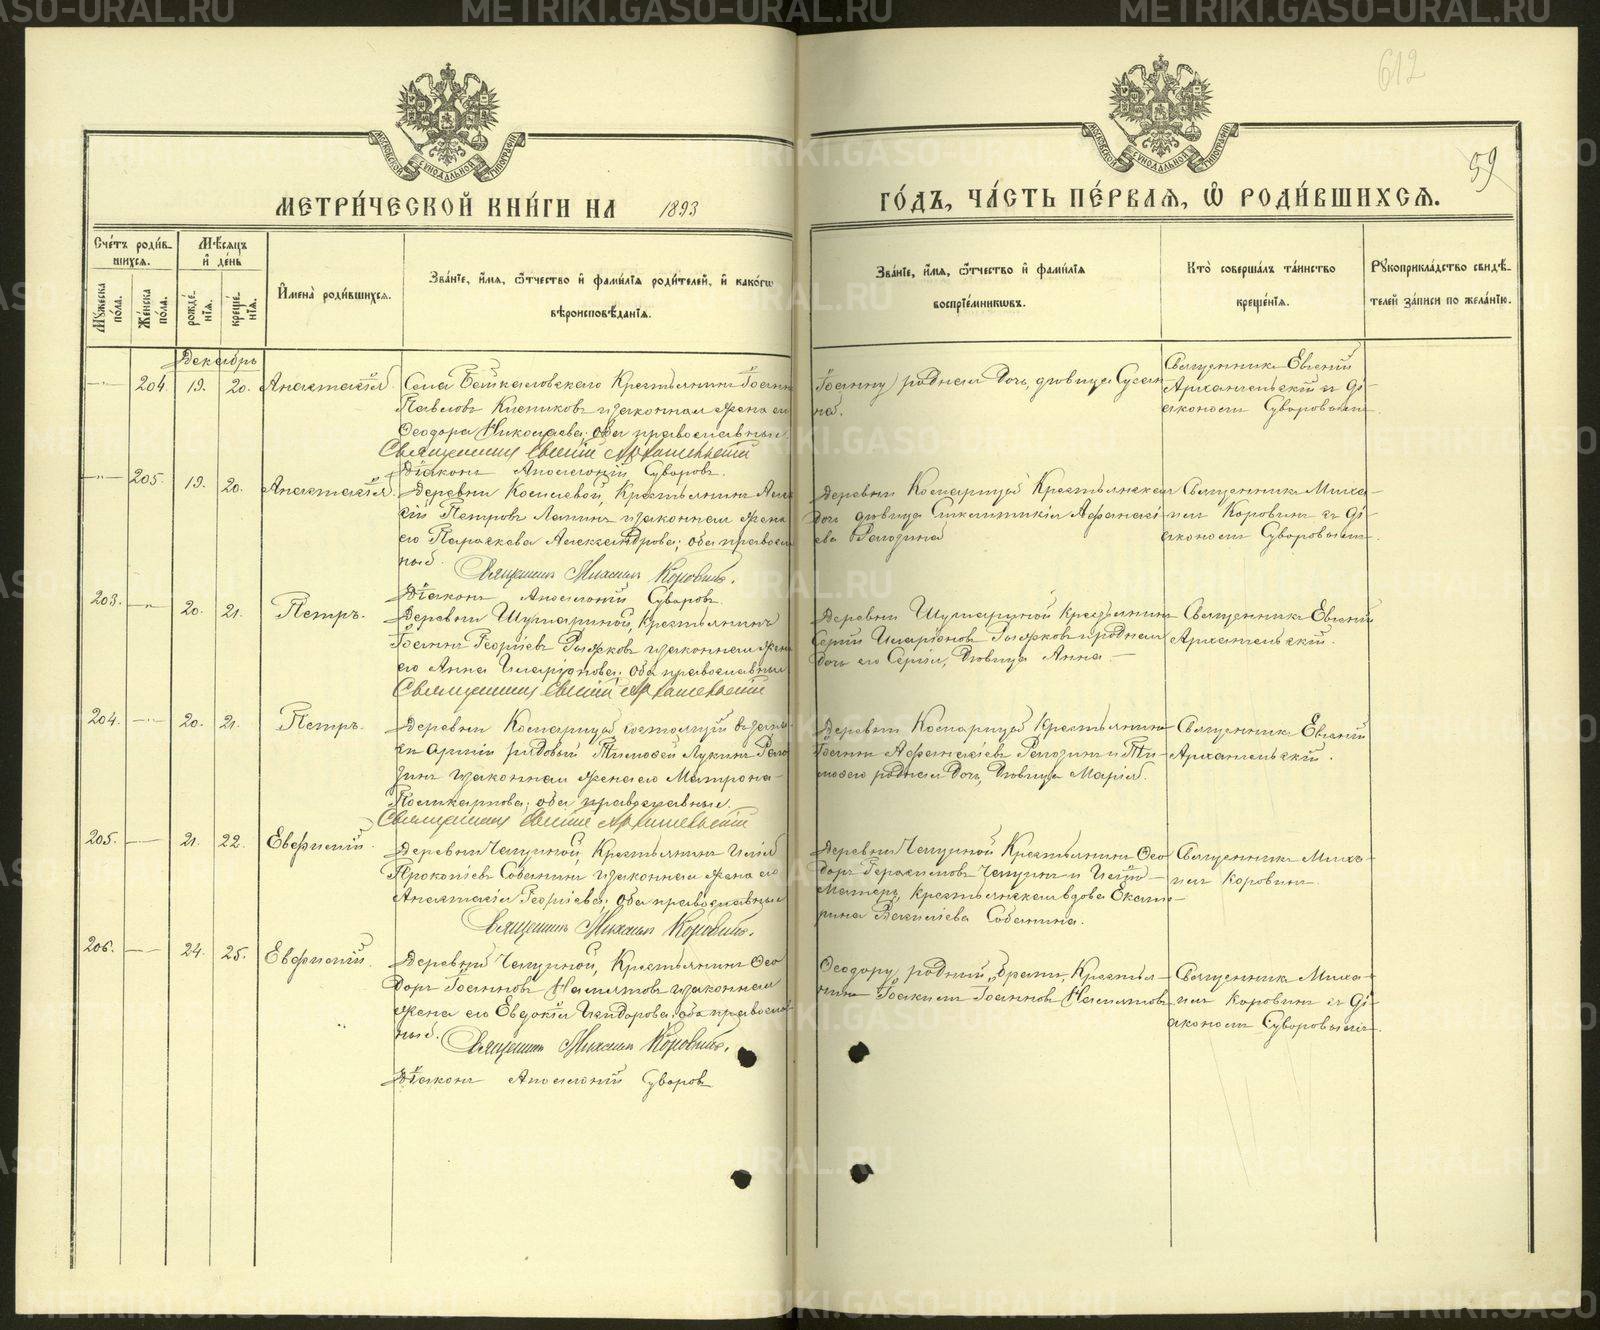 612
59
МЕТРИ́ЧЕСКОЙ КНИ́ГИ НА 1893
ГО́ДЪ, ЧА́СТЬ ПЕ́РВАЯ, Ѡ РОДИ́ВШИХСЯ.
МОСКОВСКОЙ СѴНОДАЛЬНОЙ ТИПОГРАФІИ
МОСКОВСКОЙ СѴНОДАЛЬНОЙ ТИПОГРАФІИ
Сче́тъ роди́в-
шихся.
Му́жеска по́ла.
Же́нска по́ла.
Мѣ́сяцъ
и де́нь
рожде́нїя.
креще́нїя.
Имена̀ роди́вшихся.
Зва́нїе, и́мя, ѻ҆́тчество и фами́лїя роди́телей, и како́гѡ
вѣроисповѣ́данїя.
Зва́нїе, и́мя, ѻ҆́тчество и фами́лїя
воспрїе́мниковъ.
Кто̀ соверша́лъ та́инство
креще́нїя.
Рꙋкоприкла́дство свидѣ́-
телей за́писи по жела́нїю.
Декабрь
204. 19. 20. Анастасія.
Села Крестьянинъ Іоаннъ
Павловъ и законная жена его
Ѳеодора Николаева; оба православные.
Священникъ Евгеній Архангельскій
Діаконъ Аполлоній Суворовъ.
Іоанну родная дочь, дѣвица Сусан-
на.
Священникъ Евгеній
Архангельскій съ ді-
акономъ Суворовымъ.
205. 19. 20. Анастасія.
Деревни Крестьянинъ Алек-
сій Петровъ Лапинъ и законная жена
его Параскева Александрова; оба православ-
ныя.
Священникъ Михаилъ Коровинъ.
Діаконъ Аполлоній Суворовъ.
Деревни Крестьянская
дочь дѣвица Аѳанасі-
ева Рогозина
Священникъ Миха-
илъ Коровинъ съ ді-
акономъ Суворовымъ.
203. 20. 21. Петръ.
Деревни Шумариной, Крестьянинъ
Іоаннъ Георгіевъ Рыжковъ и законная жена
его Анна Иларіонова; оба православныя
Священникъ Евгеній Архангельскій
Деревни Шумариной Крестьянинъ
Сергій Иларіоновъ Рыжковъ и родная
дочь его Сергія, дѣвица Анна.
Священникъ Евгеній
Архангельскій.
204. 20. 21. Петръ.
Деревни состоящій въ запа-
сѣ арміи рядовой Тимоѳей Лукинъ Рого-
зинъ и законная жена его Матрона
Поликарпова; оба православные.
Священникъ Евгеній Архангельскій
Деревни Крестьянинъ
Іоаннъ Аѳанасіевъ Рогозинъ и Ти-
моѳея родная дочь, дѣвица Марія.
Священникъ Евгеній
Архангельскій.
205. 21. 22. Евфимій.
Деревни Чепуриной, Крестьянинъ Илія
Прокопіевъ Собянинъ и законная жена его
Анастасія Георгіева; оба православныя
Священникъ Михаилъ Коровинъ.
Деревни Чепуриной Крестьянинъ Ѳео-
доръ Герасимовъ Чепуринъ и Иліи
матерь, крестьянская вдова Екате-
рина Василіева Собянина.
Священникъ Миха-
илъ Коровинъ.
206. 24. 25. Евфимій.
Деревни Чепуриной, Крестьянинъ Ѳео-
доръ Іоанновъ и законная
жена его Евдокія Исидорова; оба православ-
ныя.
Священникъ Михаилъ Коровинъ.
Діаконъ Аполлоній Суворовъ
Ѳеодору родный братъ, Крестья-
нинъ Іоакимъ Іоанновъ
Священникъ Миха-
илъ Коровинъ съ ді-
акономъ Суворовымъ.
METRIKI.GASO-URAL.RU